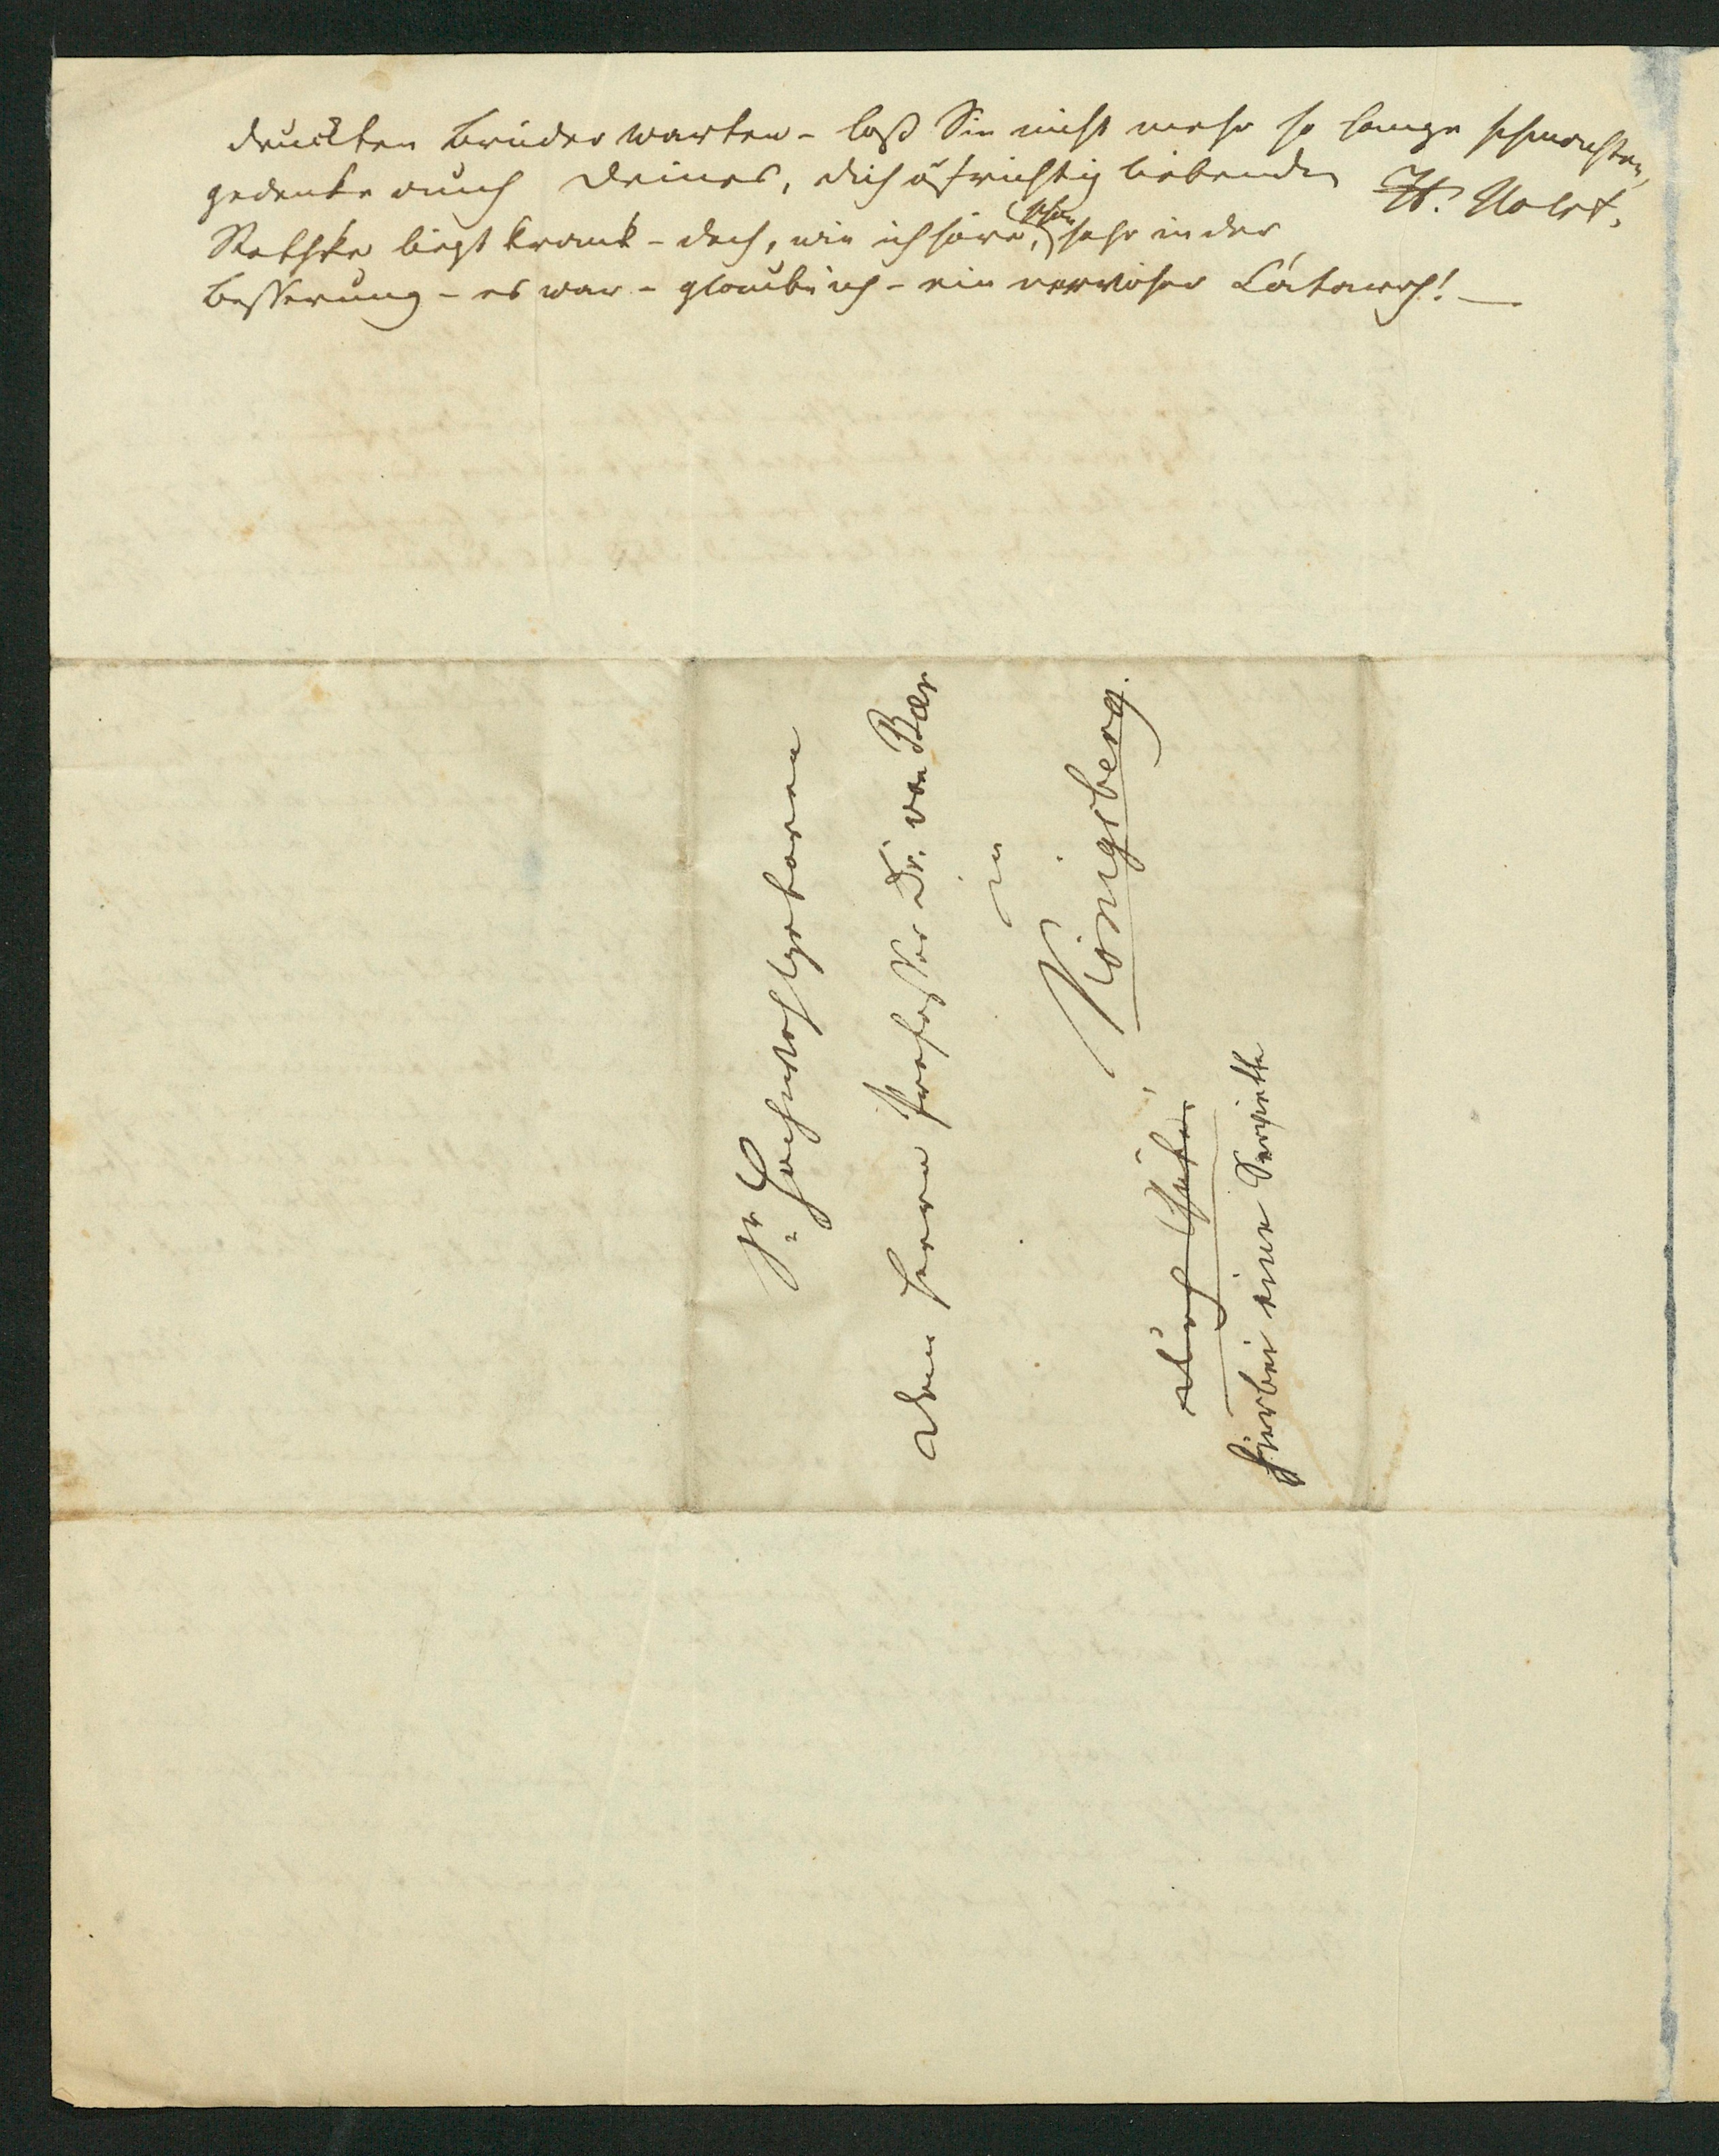 druckten Brüder warten – laß Sie nicht mehr so lange schmachten,
gedenke auch Deines, dich aufrichtig liebenden
Rathke liegt krank – doch, wie ich höre, schon sehr in der
Besserung – es war – glaube ich – ein nervöser Catarrh! —
Sr. Hochwohlgeboren
dem Herrn Professor Dr. von Baer
in
Königsberg.
durch Güte.
hierbei eine Serviette